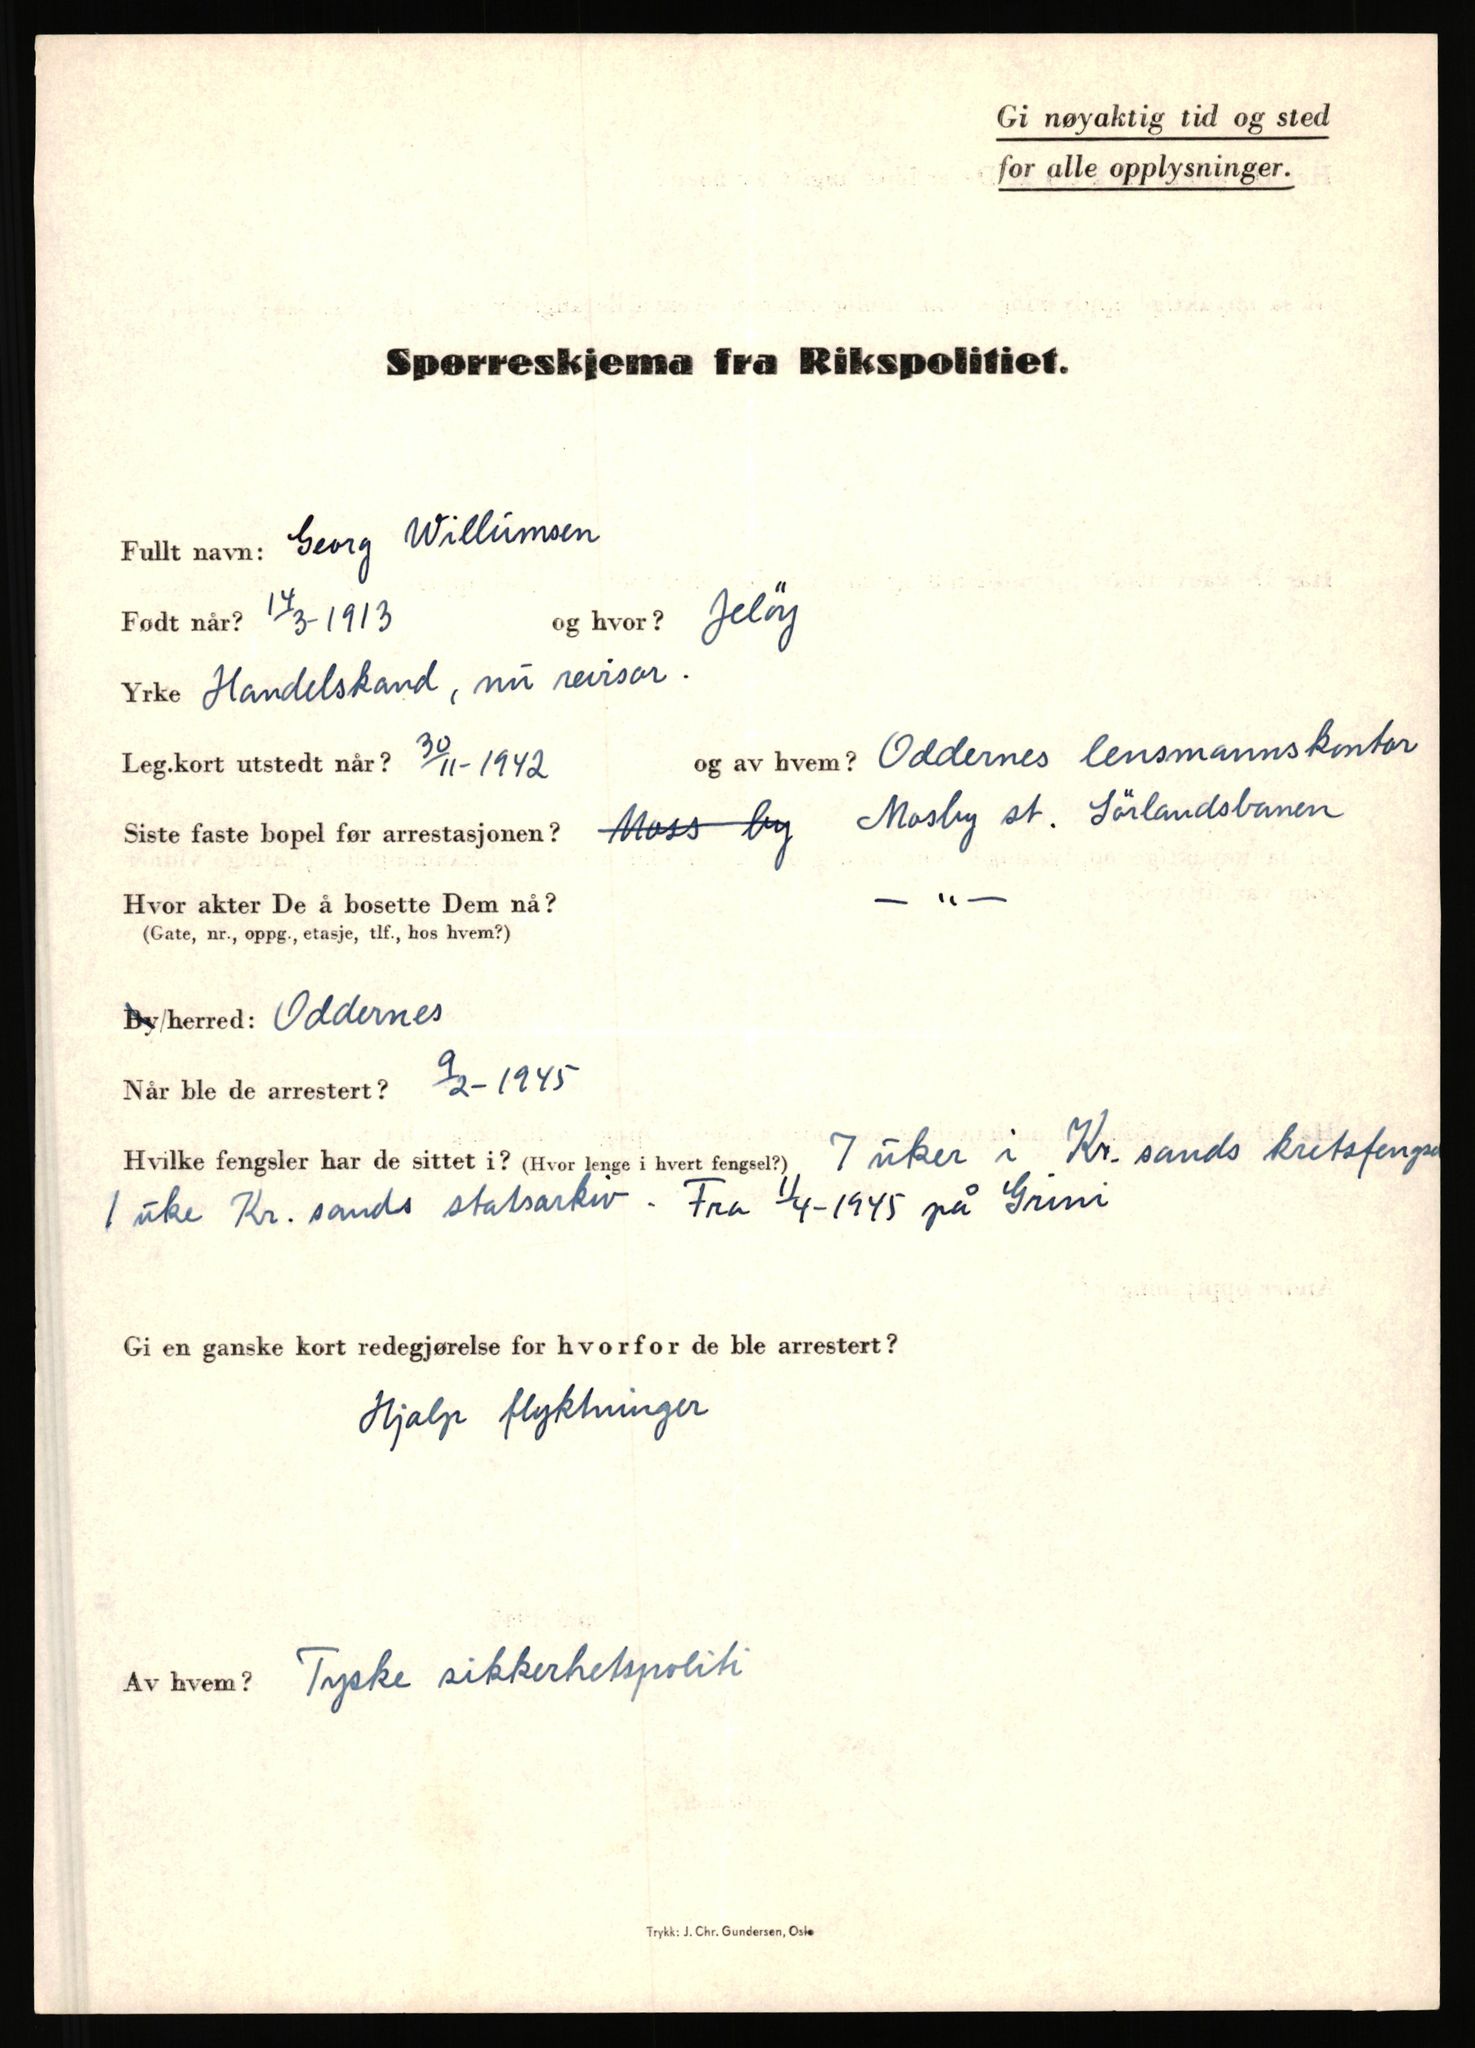 Gi nøyaktig tid og sted
for alle opplysninger.
Spørreskjema fra Rikspolitiet.
Fullt navn: Georg Willumsen
Født når? 14/3-1913 og hvor? Jelöy
Yrke Handelskand, nu revisor.
Leg.kort utstedt når? 30/11-1942 og av hvem? Oddernes lensmannskontor
Siste faste bopel før arrestasjonen? Moss by Mosby st. Sörlandsbanen
Hvor akter De å bosette Dem nå? — " —
(Gate, nr., oppg., etasje, tlf., hos hvem?)
By/herred: Oddernes
Når ble de arrestert? 9/2-1945
Hvilke fengsler har de sittet i? (Hvor lenge i hvert fengsel?) 7 uker i Kr. sands kretsfengsel
1 uke Kr. sands statsarkiv. Fra 11/4-1945 på Grini
Gi en ganske kort redegjørelse for hvorfor de ble arrestert?
Hjalp flyktninger
Av hvem? Tyske sikkerhetspoliti
Trykk: J. Chr. Gundersen, Oslo